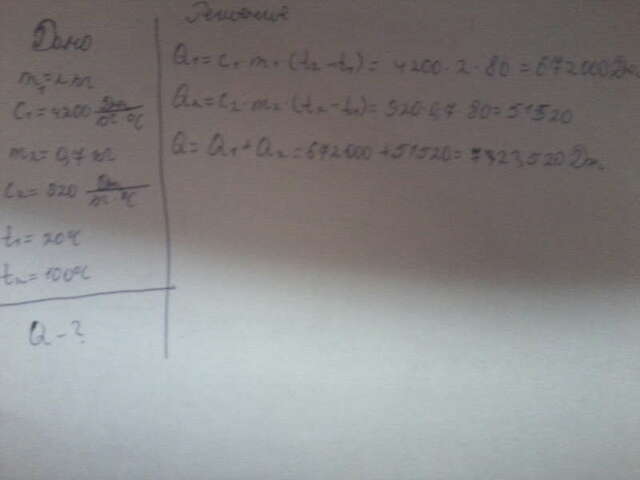 Дано
m₁ = 2 кг
c₁ = 4200 Дж/кг·°C
m₂ = 0,7 кг
c₂ = 920 Дж/кг·°C
t₁ = 20°C
t₂ = 100°C
Q - ?
Решение
Q₁ = c₁·m₁·(t₂-t₁) = 4200·2·80 = 672000 Дж
Q₂ = c₂·m₂·(t₂-t₁) = 920·0,7·80 = 51520
Q = Q₁+Q₂ = 672000+51520 = 723520 Дж.